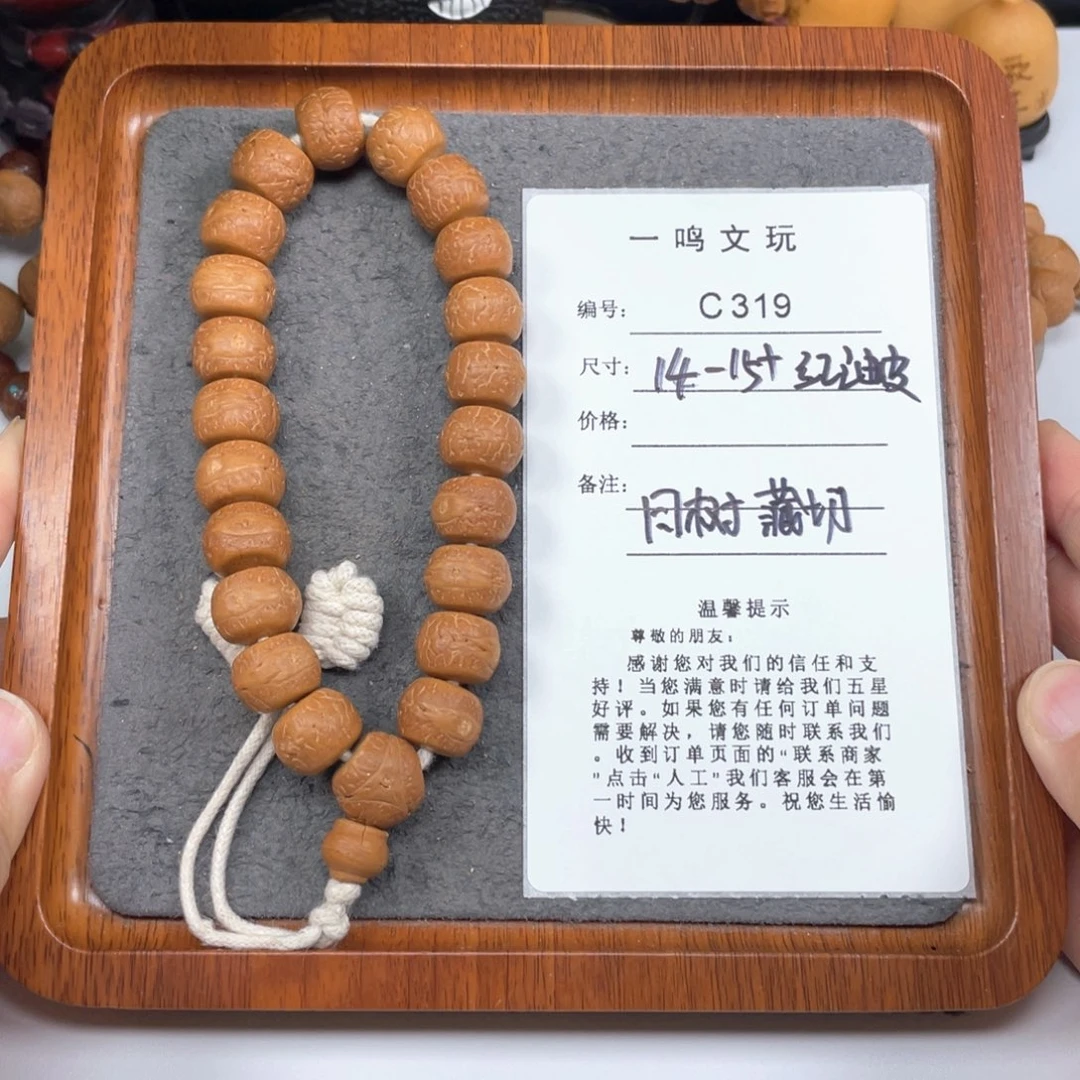 一鸣文玩
编号: C319
尺寸: 14-15+ 红油皮
价格:
备注: 同树 藏切
温馨提示
尊敬的朋友:
感谢您对我们的信任和支
持!当您满意时请给我们五星
好评。如果您有任何订单问题
需要解决,请您随时联系我们
。收到订单页面的“联系商家
"点击“人工”我们客服会在第
一时间为您服务。祝您生活愉
快!